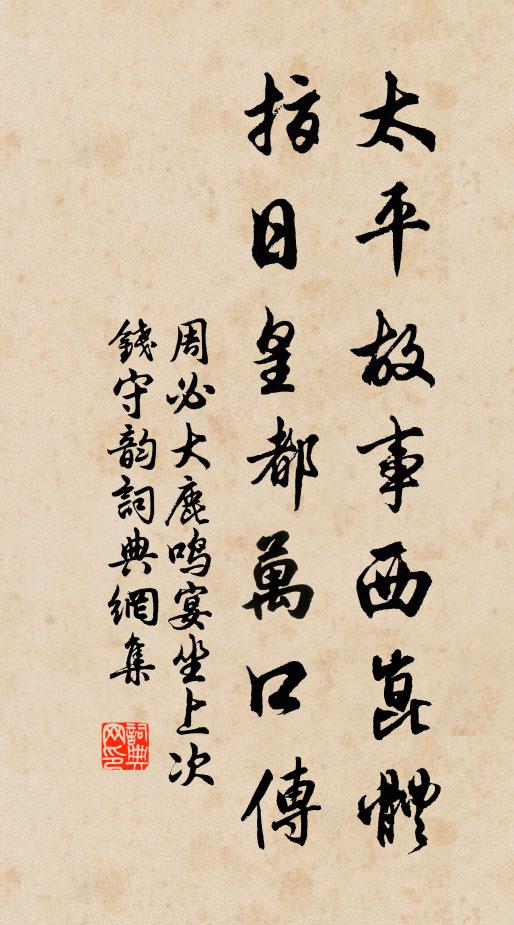 太平故事西崑體
指日皇都萬口傳
周必大鹿鳴宴坐上次
錢守韵詞典網集
詞典网印